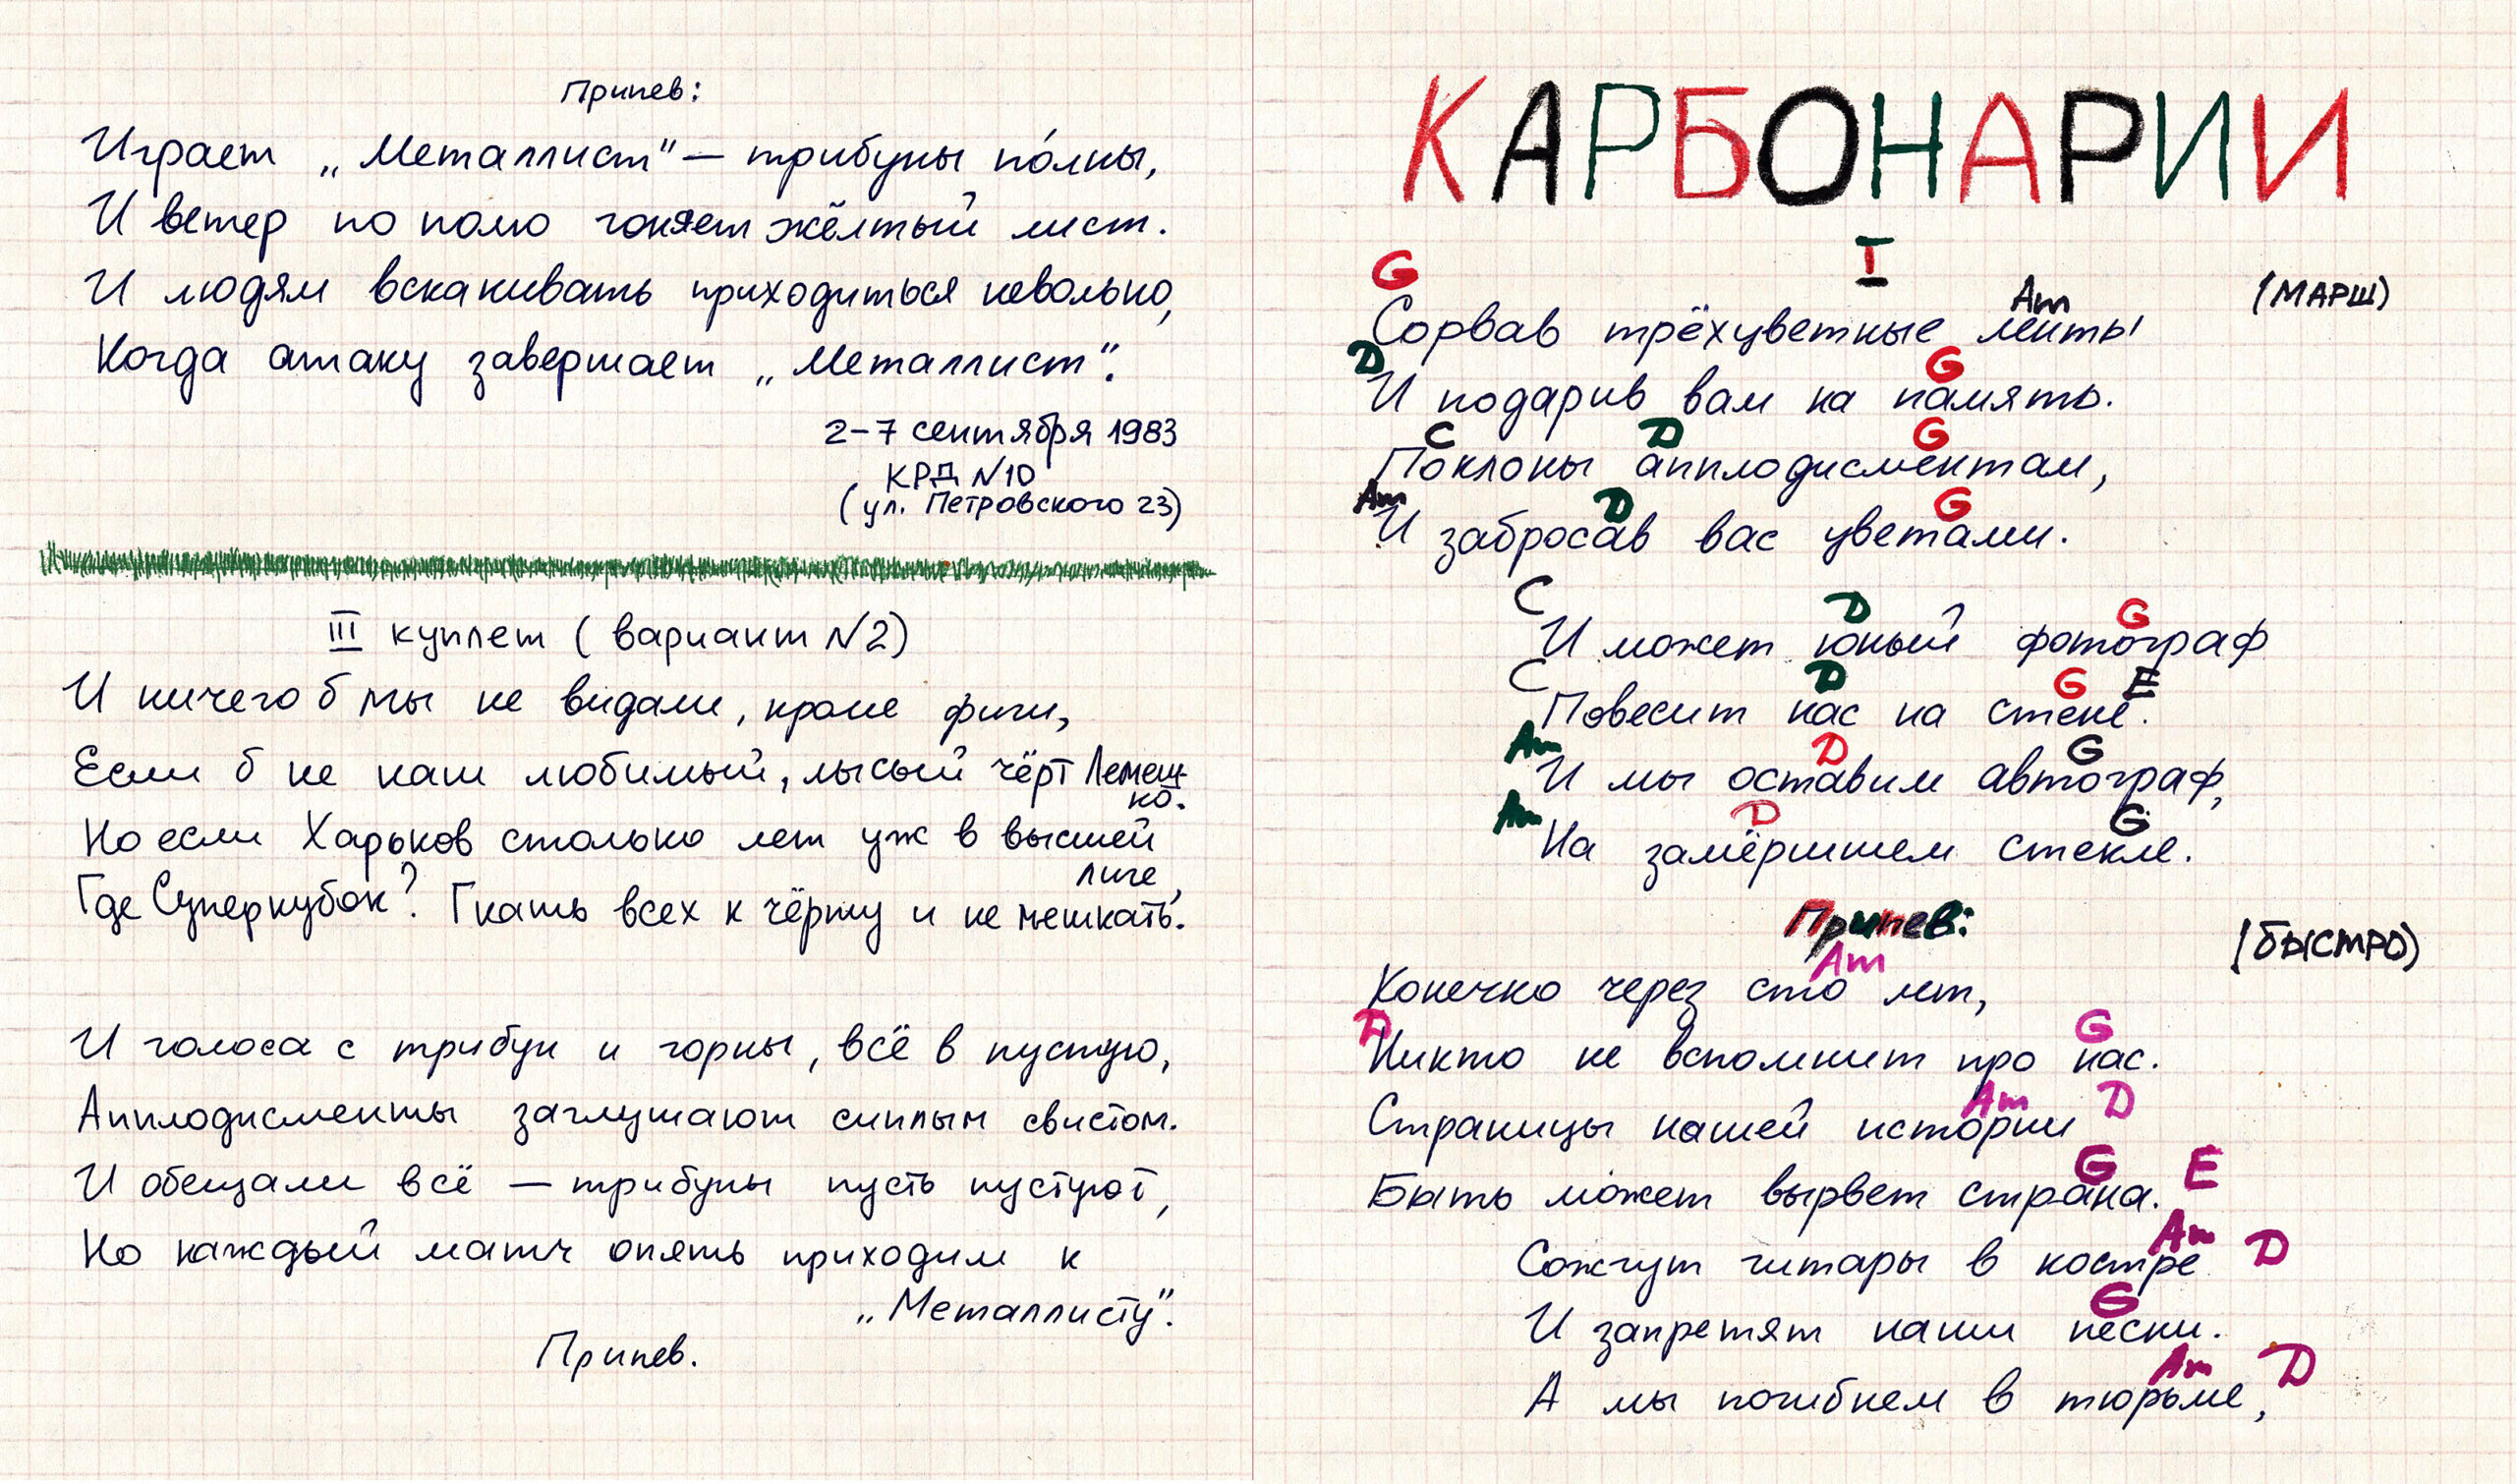 Припев:
Играет „Металлист" — трибуны по́лны,
И ветер по полю гоняет жёлтый лист.
И людям вскакивать приходиться невольно,
Когда атаку завершает „Металлист".
2–7 сентября 1983
КРД №10
(ул. Петровского 23)
III куплет (вариант №2)
И ничего б мы не видали, кроме фиги,
Если б не наш любимый, лысый чёрт Лемеш-
ко.
Но если Харьков столько лет уж в высшей
лиге,
Где Суперкубок? Гнать всех к чёрту и не мешкать.
И голоса с трибун и горны, всё в пустую,
Апплодисменты заглушают сиплым свистом.
И обещали всё — трибуны пусть пустуют,
Но каждый матч опять приходим к
„Металлисту".
Припев.
КАРБОНАРИИ
I
(МАРШ)
G Am
Сорвав трёхцветные ленты
D G
И подарив вам на память.
C D G
Поклоны апплодисментам,
Am D G
И забросав вас цветами.
C D G
И может юный фотограф
C D G E
Повесит нас на стене.
Am D G
И мы оставим автограф,
Am D G
На замёршшем стекле.
Припев:
(БЫСТРО)
Am
Конечно через сто лет,
D G
Никто не вспомнит про нас.
Am D
Страницы нашей истории
G E
Быть может вырвет страна.
Am D
Сожгут гитары в костре
G
И запретят наши песни.
Am D
А мы погибнем в тюрьме,